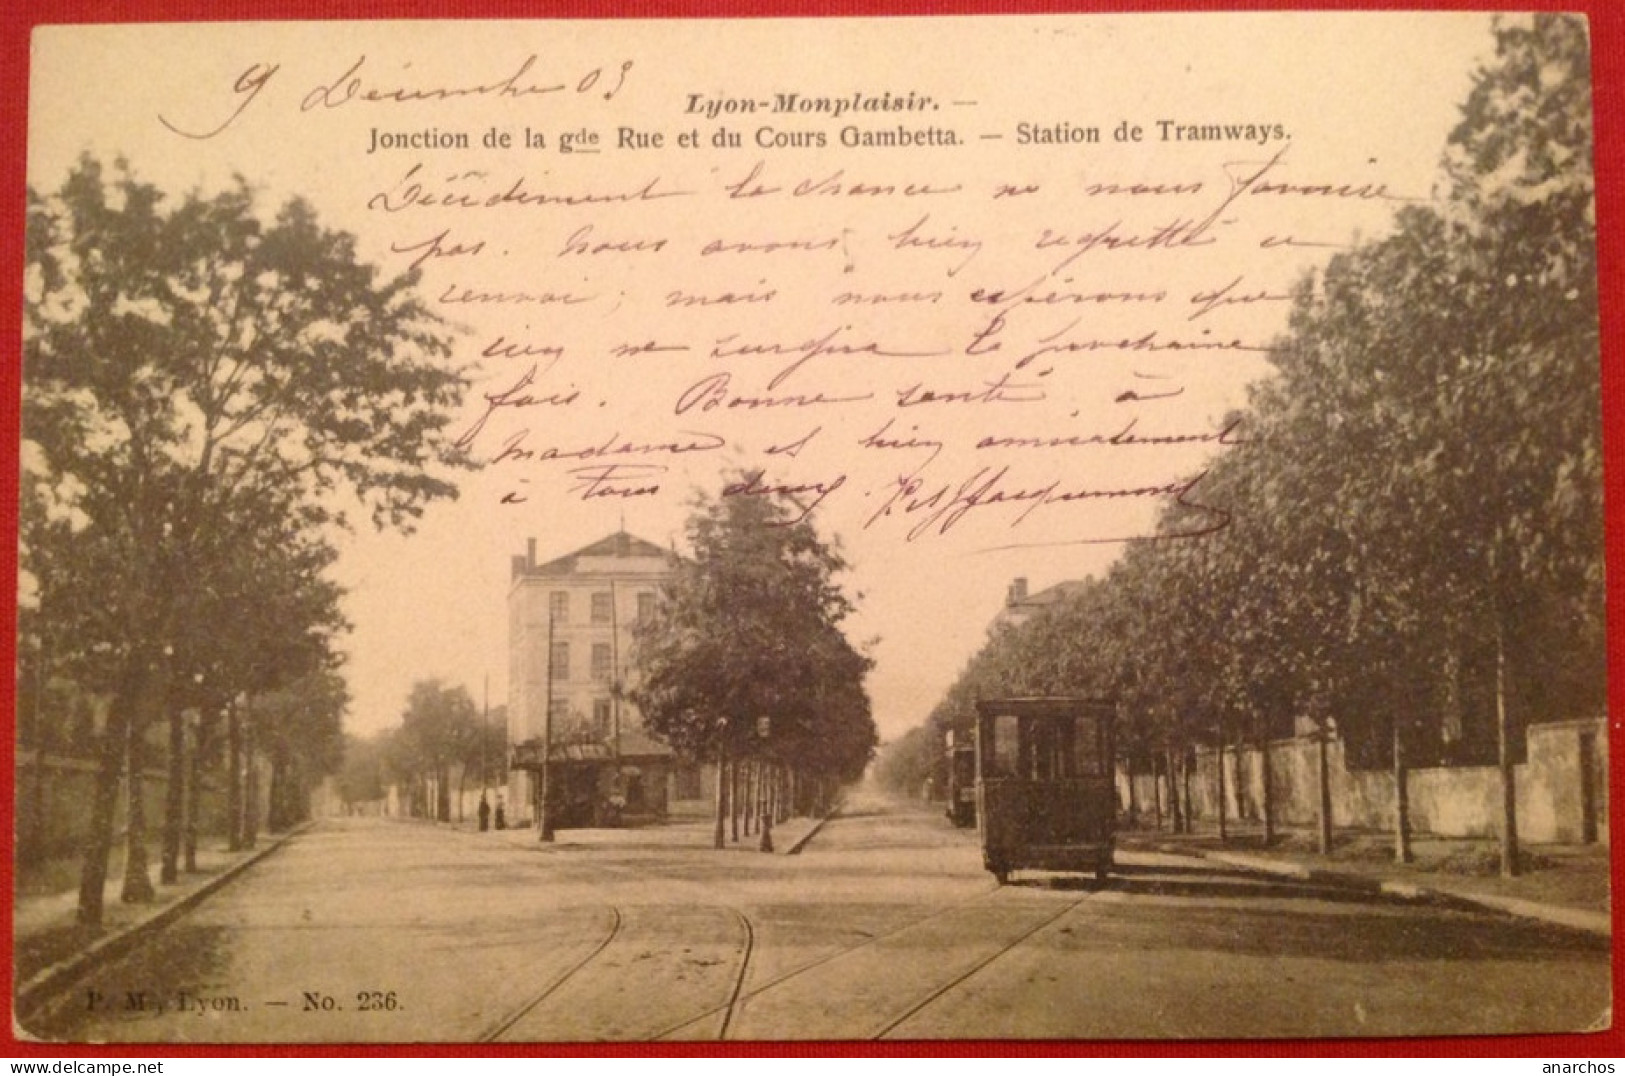 9 Décembre 03
Lyon-Monplaisir. —
Jonction de la gde Rue et du Cours Gambetta. — Station de Tramways.
Décidément la chance ne nous favorise
pas. Nous avons bien regretté ce
renvoi ; mais nous espérons que
rien ne surgira la prochaine
fois. Bonne santé à
Madame et bien amicalement
à tous deux. Jacquemont
P. M., Lyon. — No. 236.
anarchos